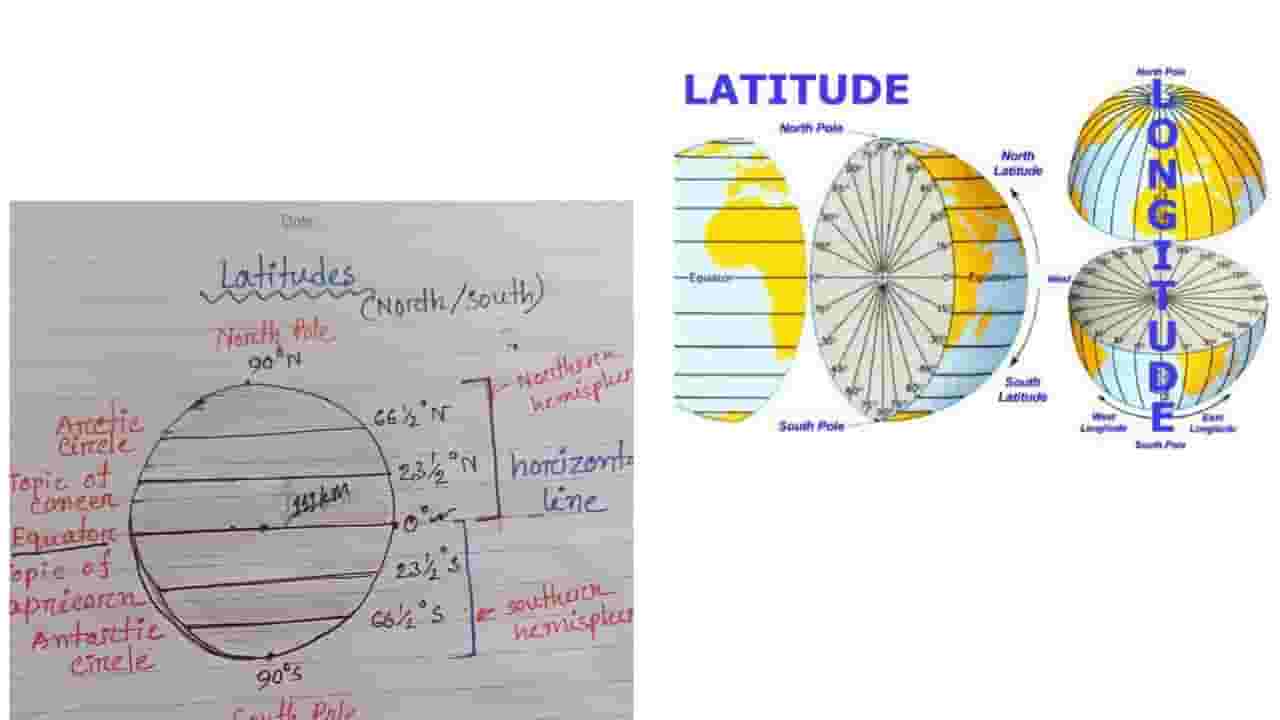 Date
Latitudes
(North/south)
North Pole
90°N
Northern
hemispher
Arctic
Circle
66½°N
23½°N
Topic of
cancer
111km
horizont
line
Equator
0°
opic of
apricorn
23½°S
66½°S
southern
hemispher
Antarctic
circle
90°S
South Pole
LATITUDE
North Pole
North
Latitude
Equator
0°
Equator
South
Latitude
South Pole
North Pole
LONGITUDE
West
West
Longitude
East
Longitude
South Pole